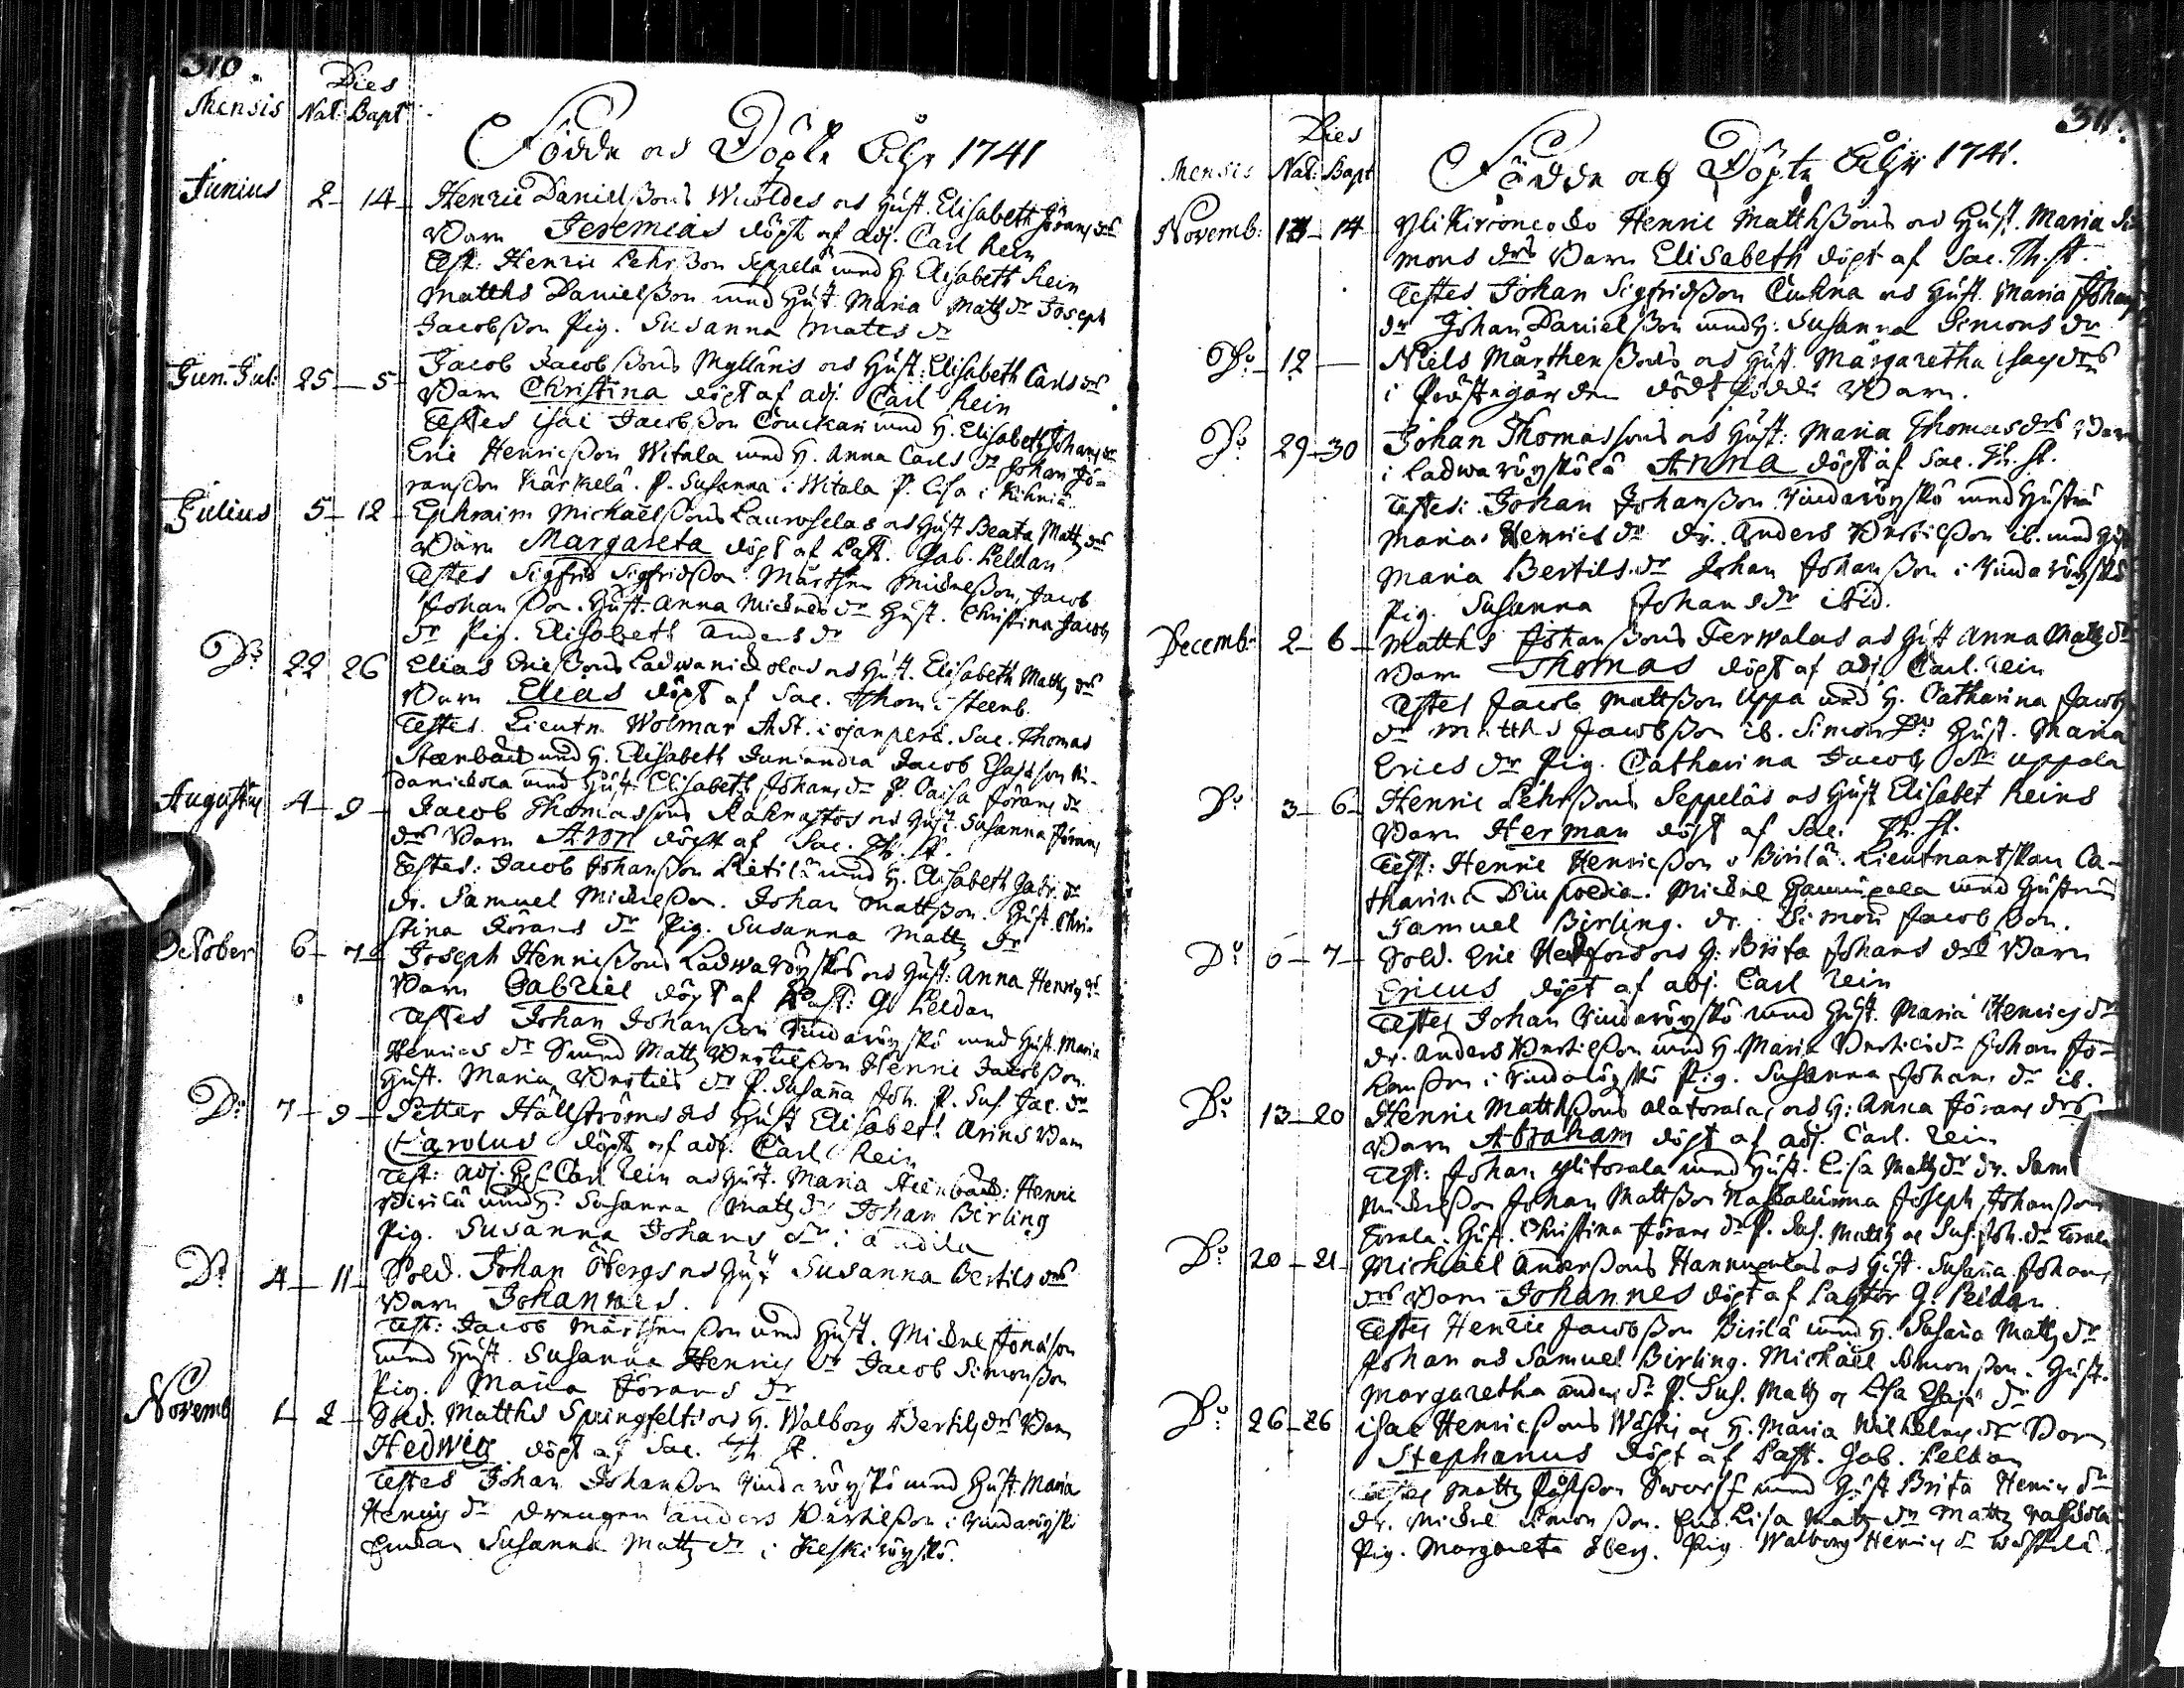 310.
Dies
Mensis Nat: Bapt
Födde os Döpte Åhr 1741
Junius 2 - 14 - Henric Danielssons Wuoldes os Hust. Elisabeth Jörans drs
Barn Jeremias döpt af Adj. Carl Rein
Test: Henric Lehrsson Seppelä med H. Elisabeth Rein
Matths Danielsson med Hust. Maria Matts dr Joseph
Jacobsson Pig. Susanna Matts dr
Jun. Jul: 25 - 5 - Jacob Jacobssons Mylläris os Hust: Elisabeth Carls drs
Barn Christina döpt af adj. Carl Rein
Testes Isac Jacobsson Couckari med H. Elisabeth Johans dr
Eric Henricsson Witala med H. Anna Carls dr Johan Jö-
ransson Kärkelä. P. Susanna i Witala P. Lisa i
Julius 5 - 12 - Ephraim Michaelssons Lauroselas os Hust Beata Matts drs
Barn Margareta döpt af Past. Gab. Peldan
Testes Sigfrid Sigfridsson Märthen Mickelsson, Jacob
Johansson. Hust. Anna Mickels dr Hust. Christina Jacobs
dr Pig. Elisabeth Anders dr
Do 22 26 Elias Ericssons Ladwanickolas os Hust. Elisabeth Matts drs
Barn Elias döpt af Sac. Thom. Steenb.
Testes Lieutn. Wolmar Ast. i ojanperä. Sac. Thomas
Steenback med H. Elisabeth Juniandra Jacob Esaisson
danickola med Hust. Elisabeth Johans dr P. Caisa Jörans dr
Augustus 4 - 9 - Jacob Thomassons os Hust. Susanna Jörans
drs Barn Aron döpt af Sac. Th. St.
Testes: Jacob Johansson Lietilä med H. Elisabeth Gabr. dr
dr. Samuel Mickelsson. Johan Mattsson. Hust. Chri-
stina Jörans dr Pig. Susanna Matts dr
October 6 - 7 - Joseph Henricssons Ladwaröyskös os Hust: Anna Henrics drs
Barn Gabriel döpt af Past: G Peldan
Testes Johan Johansson Rindaröyskö med Hust. Maria
Henrics dr Matts Bertilsson Henric Jacobsson.
Hust. Maria Bertils dr P. Susanna Joh. P. Sus. Jac. dr
Do 7 - 9 - Petter Hällströms os Hust Elisabeth Arins Barn
Carolus döpt af adj. Carl Rein
Test: adj. H. Carl Rein os Hust. Maria Steenback: Henric
Birilä med H. Susanna Matts dr Johan Birling
Pig. Susanna Johans dr i
Do 4 - 11 - Sold. Johan Öbergs os Hust Susanna Bertils drs
Barn Johannes.
Test: Jacob Märthensson med Hust. Mickel Jonasson
med Hust. Susanna Henrics dr Jacob Simonsson
Pig. Maria Jörans dr
Novemb 1 - 2 - Sold. Matths Springfelts os H. Walborg Bertils drs Barn
Hedwig döpt af Sac. Th. St.
Testes Johan Johansson Rindaröyskö med Hust. Maria
Henrics dr drengen Anders Bertilsson i Rindaröyskö
Enckan Susanna Matts dr i Keskiröyskö.
311.
Dies
Mensis Nat: Bapt
Födde os Döpte Åhr 1741.
Novemb: 14 Henric Matthssons os Hust. Maria Si
mons drs Barn Elisabeth döpt af Sac. Th. St.
Testes Johan Sigfridsson os Hust. Maria Johans
dr Johan Danielsson med H: Susanna Simons dr
Do - 12 - Niels Märthenssons os Hust. Margaretha Isacs drs
i Prästegården dödt födde Barn.
Do 29 - 30 Johan Thomassons os Hust: Maria Thomas drs Barn
i Ladwaröysköla Anna döpt af Sac. Th. St.
Testes: Johan Johansson Rindaröyskö med Hustru
Maria Henrics dr dr. Anders Bertilsson ib. med H
Maria Bertils dr Johan Johansson i Rindaröyskö
Pig. Susanna Johans dr ibid.
Decemb: 2 - 6 - Matths Johanssons Terwalas os Hust Anna Matts drs
Barn Thomas döpt af adj. Carl. Rein
Testes Jacob Mattsson Uppa med H. Catharina Jacobs
dr Matths Jacobsson ib. Simon Do Hust. Maria
Erics dr Pig. Catharina Jacobs dr Uppala
Do 3 - 6 - Henric Lehrssons Seppeläs os Hust Elisabet Reins
Barn Herman döpt af Sac. Th. St.
Test: Henric Henricsson Birilä. Lieutnantskan Ca-
tharina. Mickel Hannuxela med Hustru
Samuel Birling. dr. Simon Jacobsson.
Do 6 - 7 - Sold. Eric Hedfors os H: Brita Johans drs Barn
Ericus döpt af adj. Carl Rein
Testes Johan Rindaröyskö med Hust. Maria Henrics dr
dr. Anders Bertilsson med H. Maria Bertils dr Johan Jo-
hansson i Rindaröyskö Pig. Susanna Johans dr ib.
Do 13 - 20 Henric Matthssons Alatoralas os H: Anna Jörans drs
Barn Abraham döpt af adj. Carl. Rein
Test: Johan Ylitorala med Hust. Lisa Matts dr dr. Sam
Mickelsson Johan Mattsson Joseph Johansson
Torala. Hust. Christina Jörans dr P. Sus. Matts os Sus. Joh. dr Torala
Do 20 - 21 - Michael Anderssons Hannuxelas os Hust. Susanna Johans
drs Barn Johannes döpt af Pastor G: Peldan
Testes Henric Jacobsson Birilä med H. Susanna Matts dr
Johan os Samuel Birling. Michael Simonsson. Hust.
Margaretha Anders dr P. Sus. Matts os Lisa Esaiæ dr
Do 26 - 26 Isac Henricssons os H. Maria Wilhelms dr Barn
Stephanus döpt af Past. Gab. Peldan
Testes Matts med Hust Brita Henrics dr
dr. Mickel Simonsson. Enk. Lisa Matts dr Matts
Pig. Margareta Öberg. Pig. Walborg Henrics dr